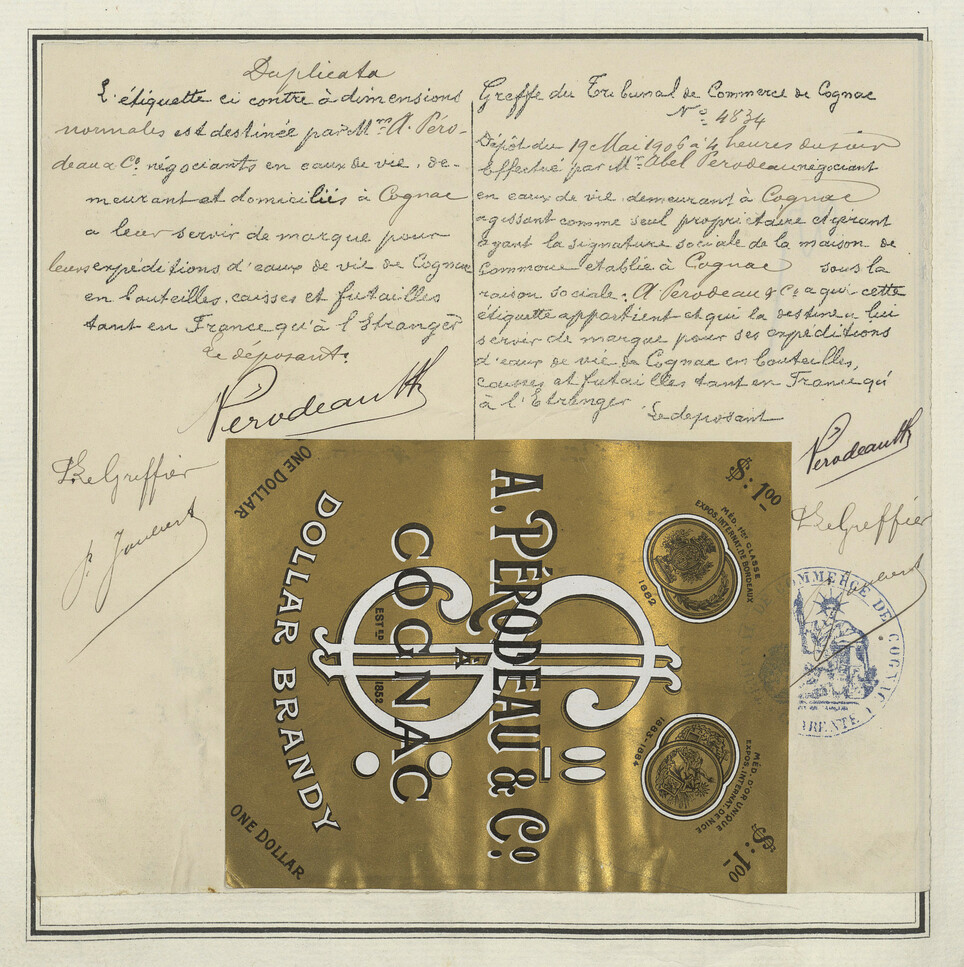 Duplicata
L'étiquette ci contre à dimensions
normales est destinée par Mrs A. Péro-
deau & Co. négociants en eaux de vie, de-
meurant et domiciliés à Cognac
a leur servir de marque pour
leurs expéditions d'eaux de vie de Cognac
en bouteilles, caisses et futailles
tant en France qu'à l'Etranger
Le déposant.
Pérodeau
Le Greffier
Greffe du Tribunal de Commerce de Cognac
No. 4834
Dépôt du 19 Mai 1906 à 4 heures du soir
Effectué par Mr. Abel Perodeau négociant
en eaux de vie, demeurant à Cognac
agissant comme seul propriétaire et gérant
ayant la signature sociale de la maison de
Commerce etablie à Cognac sous la
raison sociale: A Perodeau & Co a qui cette
étiquette appartient et qui la destine a lui
servir de marque pour ses expéditions
d'eaux de vie de Cognac en bouteilles,
caisses et futailles tant en France qu'
à l'Etranger
Le deposant
Pérodeau
Le Greffier
A. PÉRODEAU & Co.
À
COGNAC
ESTED 1852
DOLLAR BRANDY
ONE DOLLAR
ONE DOLLAR
$: 1 00
$: 1 00
MÉD. 1ère CLASSE
EXPOS. INTERNAT. DE BORDEAUX
1882
MÉD. D'OR UNIQUE
EXPOS. INTERNAT. DE NICE
1883-1884
DE COMMERCE DE COGNAC